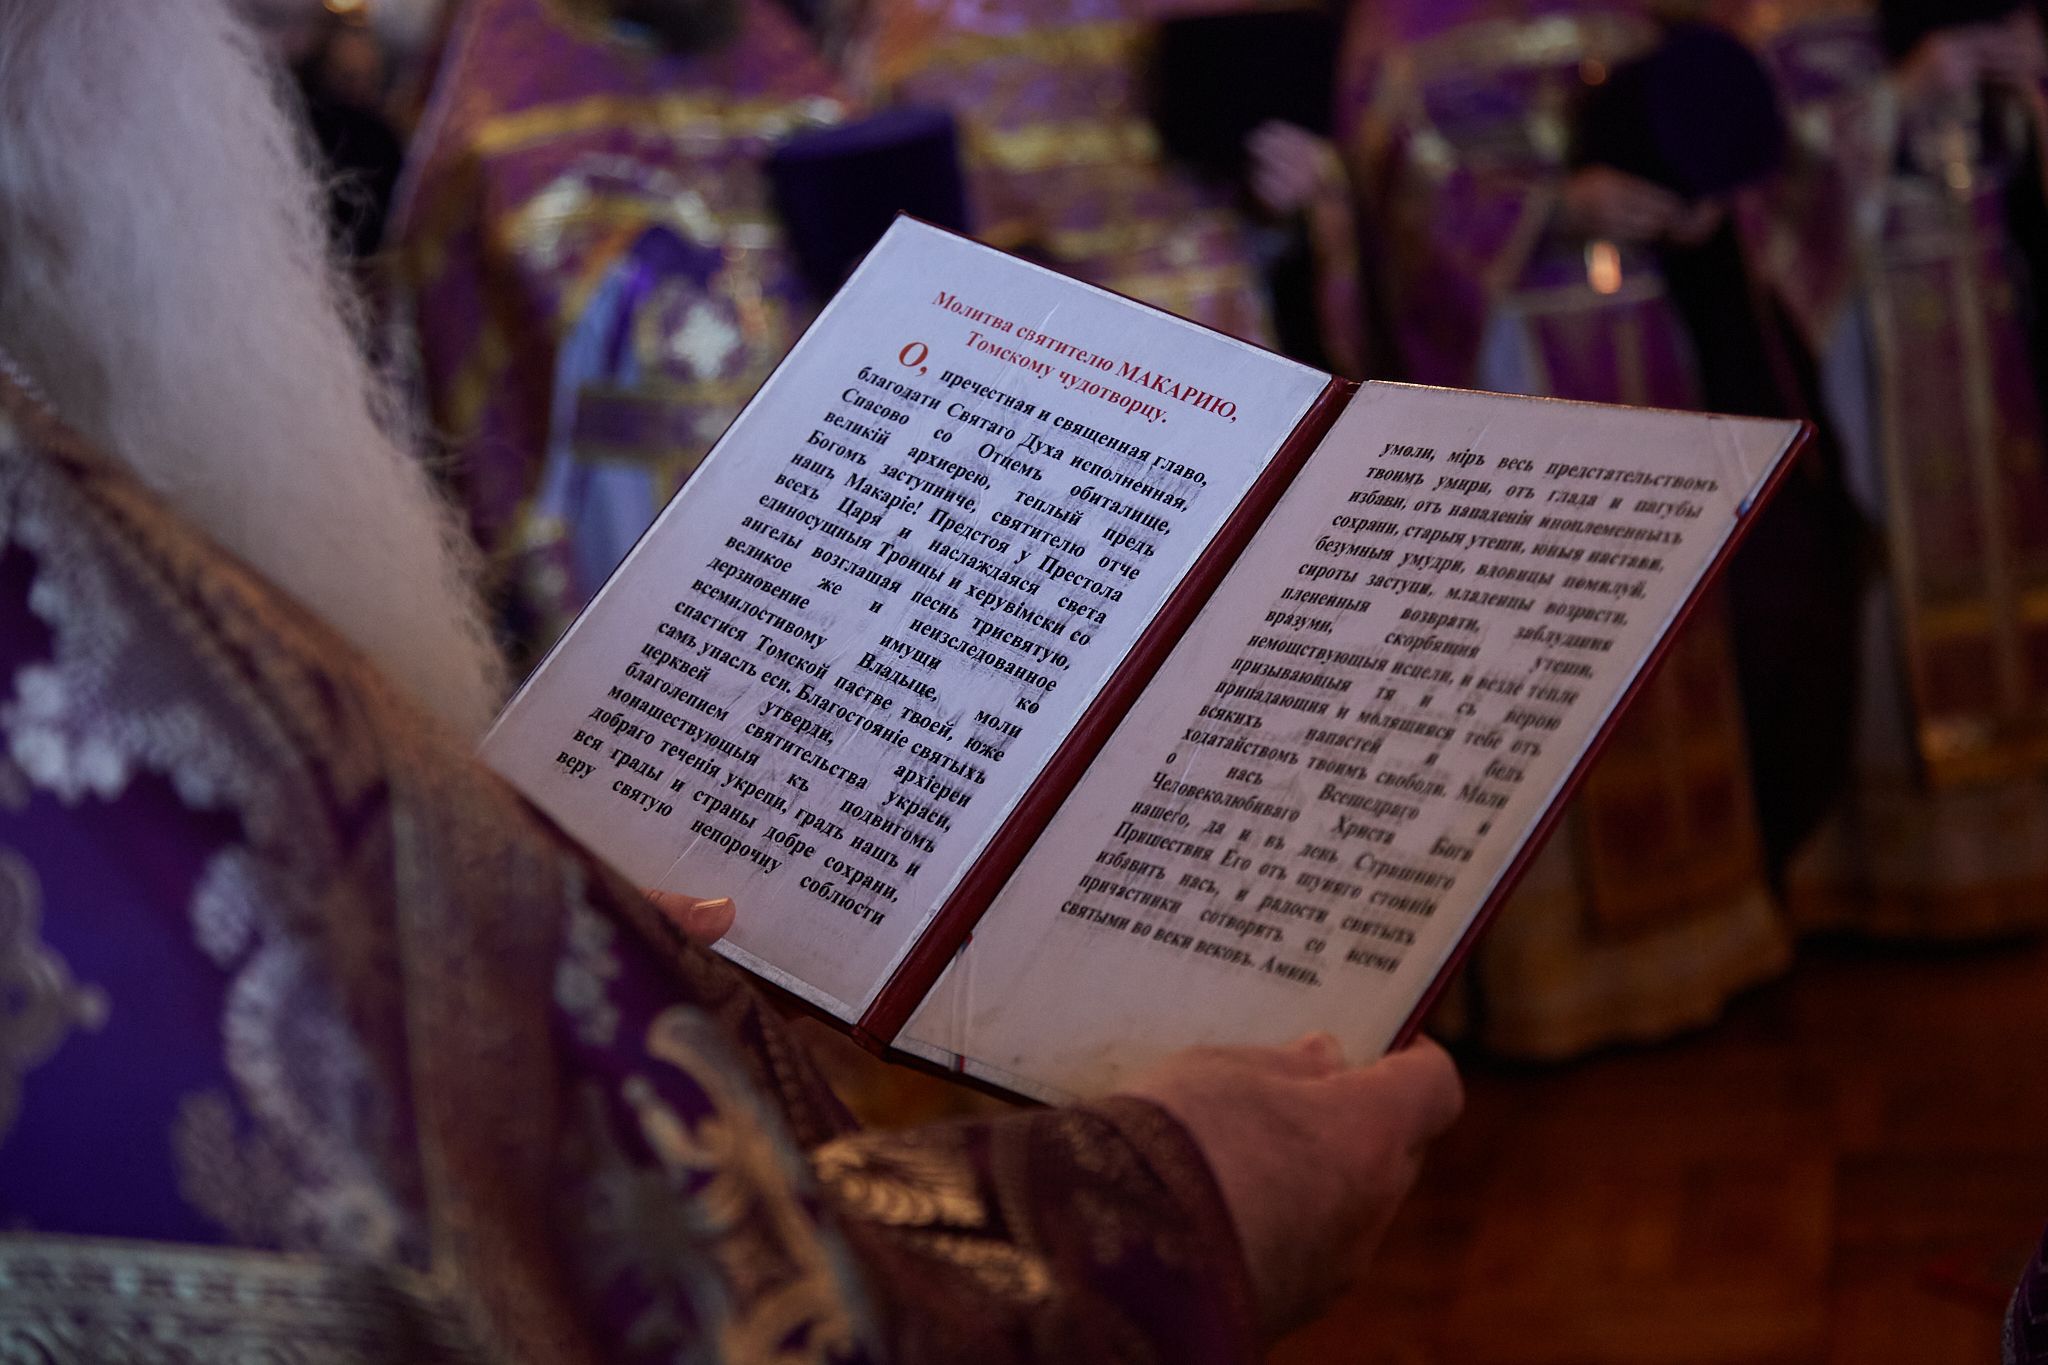 Молитва святителю МАКАРИЮ,
Томскому чудотворцу.
О, пречестная и священная главо,
благодати Святаго Духа исполненная,
Спасово со Отцемъ обиталище,
великій архиерею, теплый предъ
Богомъ заступниче, святителю отче
нашъ Макаріе! Предстоя у Престола
всехъ Царя и наслаждаяся света
единосущныя Троицы и херувімски со
ангелы возглашая песнь трисвятую,
великое же и неизследованное
дерзновение имущи ко
всемилостивому Владыце, моли
спастися Томской пастве твоей, юже
самъ упаслъ еси. Благостояніе святыхъ
церквей утверди, архіереи
благолепием святительства украси,
монашествующыя къ подвигомъ
добраго теченія укрепи, градъ нашъ и
вся грады и страны добре сохрани,
веру святую непорочну соблюсти
умоли, міръ весь предстательствомъ
твоимъ умири, отъ глада и пагубы
избави, отъ нападенія иноплеменныхъ
сохрани, старыя утеши, юныя настави,
безумныя умудри, вдовицы помилуй,
сироты заступи, младенцы возрасти,
плененныя возврати, заблудшия
вразуми, скорбящия утеши,
немощствующыя исцели, и везде тепле
призывающыя тя и съ верою
припадающия и молящияся тебе отъ
всякихъ напастей и бедъ
ходатайствомъ твоимъ свободи. Моли
о насъ Всещедраго и
Человеколюбиваго Христа Бога
нашего, да и въ день Страшнаго
Пришествия Его отъ шуияго стояния
избавитъ насъ, и радости святыхъ
причастники сотворитъ со всеми
святыми во веки вековъ. Аминь.